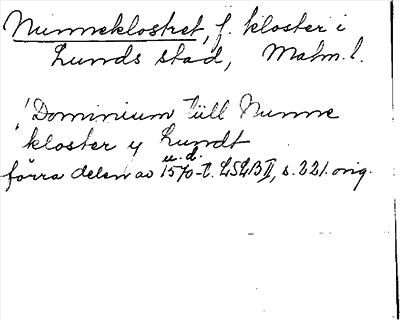 Nunneklostret, f. kloster i
Lunds stad, Malm. l.
"Dominium till Nunne
kloster y Lundt
u.d.
förra delen av 1570-t. LSLB II, s. 221. orig.